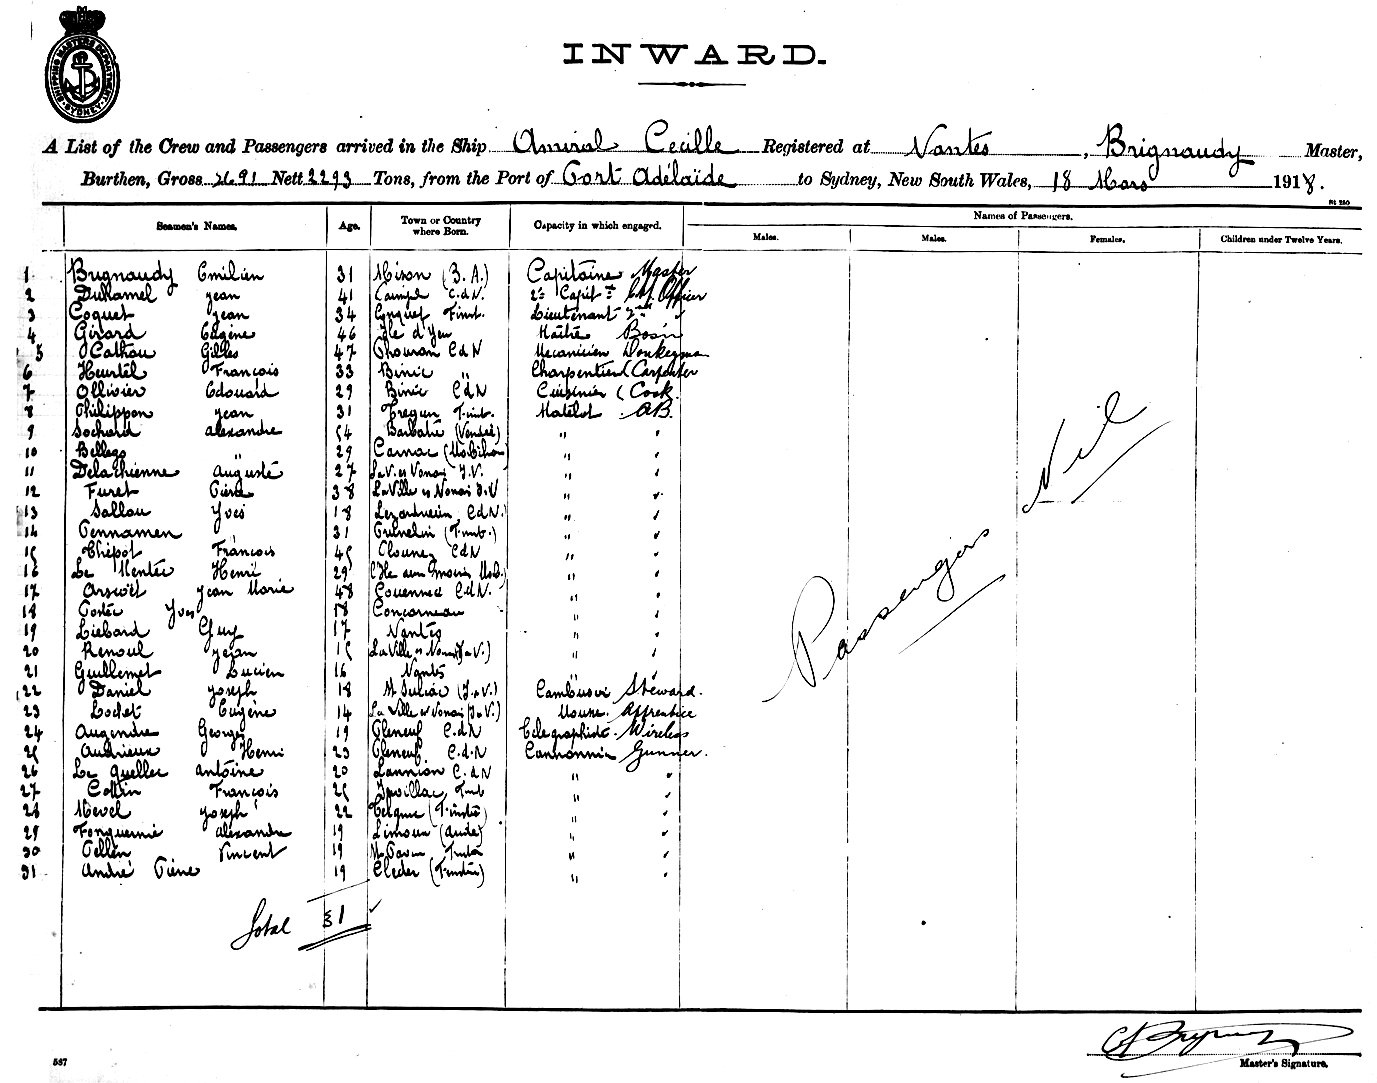 SHIPPING MASTERS DEPARTMENT SYDNEY
INWARD.
A List of the Crew and Passengers arrived in the Ship Amiral Cecille Registered at Nantes, Brignaudy Master,
Burthen, Gross 2691 Nett 2293 Tons, from the Port of Port Adélaïde to Sydney, New South Wales, 18 Mars 1918.
Seamen's Names. Age. Town or Country where Born. Capacity in which engaged. Names of Passengers.
Males. Males. Females. Children under Twelve Years.
1 Brignaudy Emilien 31 Mison (B. A.) Capitaine Master
2 Duhamel Jean 41 C.d.N. 2e Capit Officer
3 Coquet Jean 34 Finist. Lieutenant 2nd
4 Girard Eugène 46 Ile d'Yeu Maître Bosn
5 Calhau Gilles 47 CdN Mecanicien Donkeyman
6 Heurtel Francois 33 Binic " Charpentier (Carpenter
7 Ollivier Edouard 29 Binic CdN Cuisinier (Cook
8 Philippon Jean 31 Finist. Matelot AB.
9 Sochard Alexandre 54 Barbatre (Vendée) " "
10 Bellego " 29 Carnac " "
11 Delachienne Auguste 27 I.V. " "
12 Furet Pierre 38 La Ville es Nonais I.V " "
13 Sallou Yves 18 Lezardrieu CdN. " "
14 Pennamen 31 (Finist.) " "
15 Thépot François 45 CdN " "
16 Le Mentec Henri 29 L'Ile aux Moines " "
17 Jean Marie 48 C.d.N. " "
18 Postec Yves 18 Concarneau " "
19 Liebard Guy 17 Nantes " "
20 Renoul Jean 15 La Ville es Nonais (I.V.) " "
21 Guillemet Lucien 16 Nantes " "
22 Daniel Joseph 18 St Suliac (I.V.) Cambusier Steward.
23 Lochet Eugène 14 La Ville es Nonais (I.V.) Mousse Apprentice
24 Augendre Georges 19 Pleneuf C.dN Telegraphiste Wireless
25 Audrieux Henri 23 Pleneuf C.d.N Cannonnier Gunner.
26 Le Quellec Antoine 20 Lannion C.dN " "
27 Cottin François 25 Irvillac, Finist " "
28 Mevel Joseph 22 (Finistè) " "
29 Alexandre 19 Limoux (Aude) " "
30 Pellen Vincent 19 " "
31 André Pierre 19 Cleder (Finistè) " "
Passengers Nil
Total 31
Master's Signature.
587